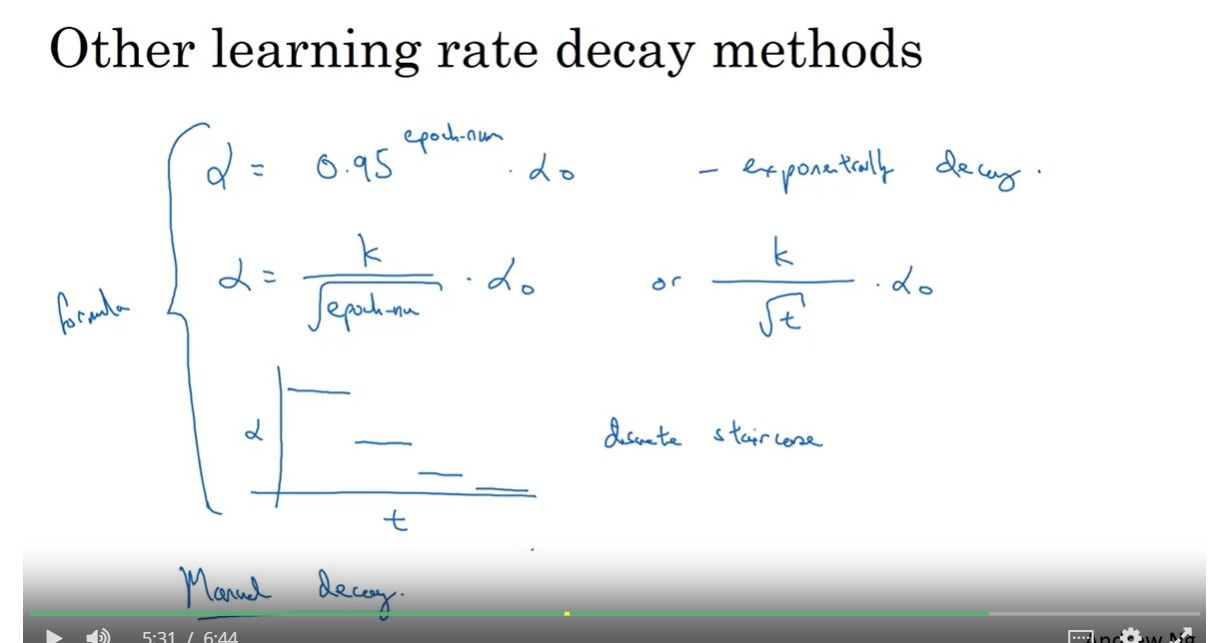 Other learning rate decay methods
α = 0.95^epoch-num · α₀ - exponentially decay.
formula
α = k / √epoch-num · α₀ or k / √t · α₀
α
discrete staircase
t
Manual decay.
5:31 / 6:44